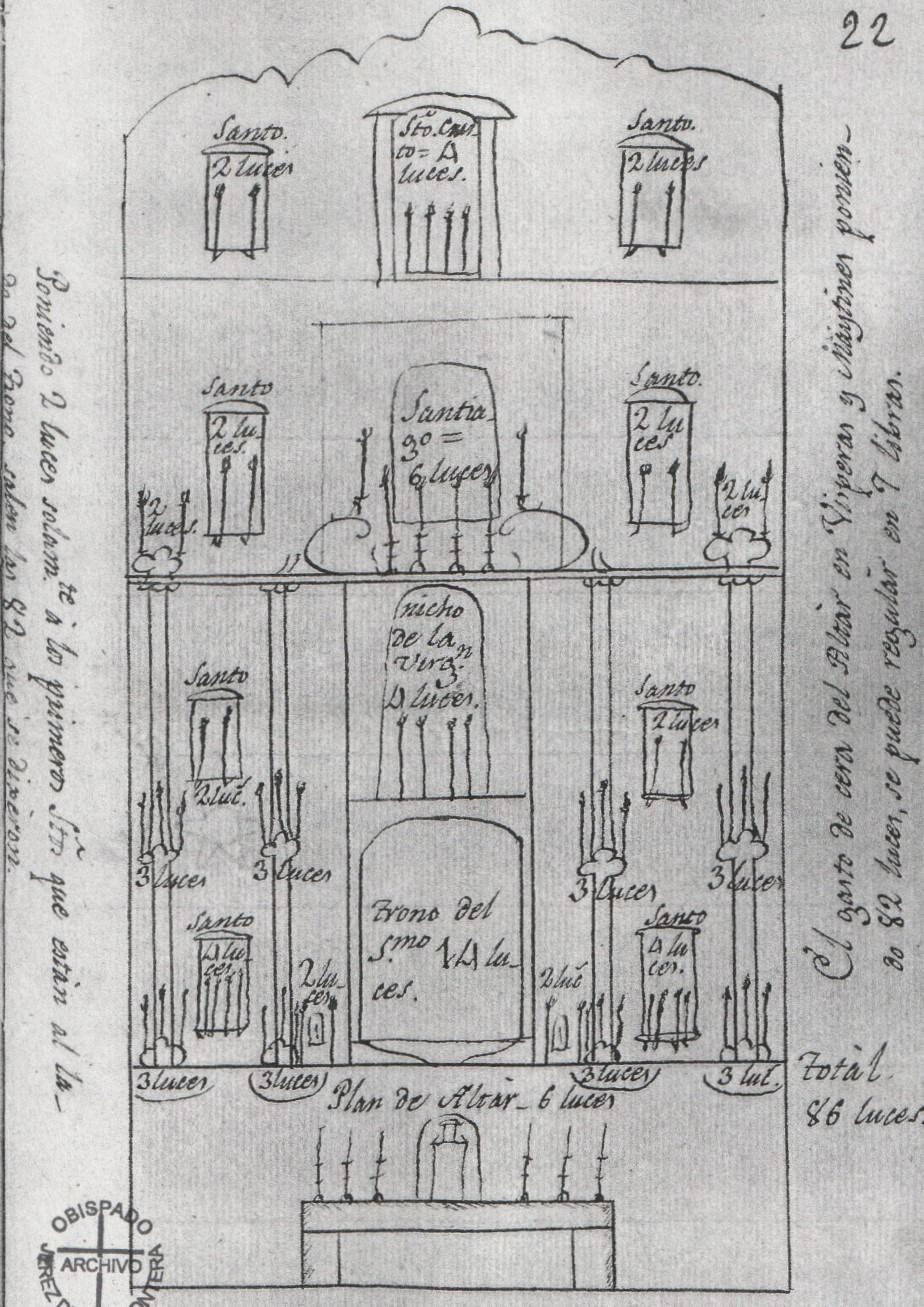 22
Santo.
2 luces
Sto. Cris-
to = 4
luces.
Santo.
2 luces
Santo
2 lu-
ces.
Santia-
go =
6 luces
Santo.
2 lu
ces.
2
luces.
2 lu-
ces
nicho
de la
Virgn
4 luces.
Santo
2 luc.
Santo
2 luces
3 luces
3 luces
3 luces
3 luces
Santo
4 lu-
ces.
2 lu-
ces
trono del
S.mo 14 lu-
ces.
2 luc
Santo
4 lu-
ces.
3 luces
3 luces
3 luces
3 luc.
Plan de Altar - 6 luces
Total.
86 luces.
El gasto de cera del Altar en Visperas y Maytines ponien-
do 82 luces, se puede regular en 7 libras.
Poniendo 2 luces solam.te à los primeros Stos que están al la-
do del trono, salen las 82 que se dixeron.
OBISPADO
ARCHIVO
JEREZ